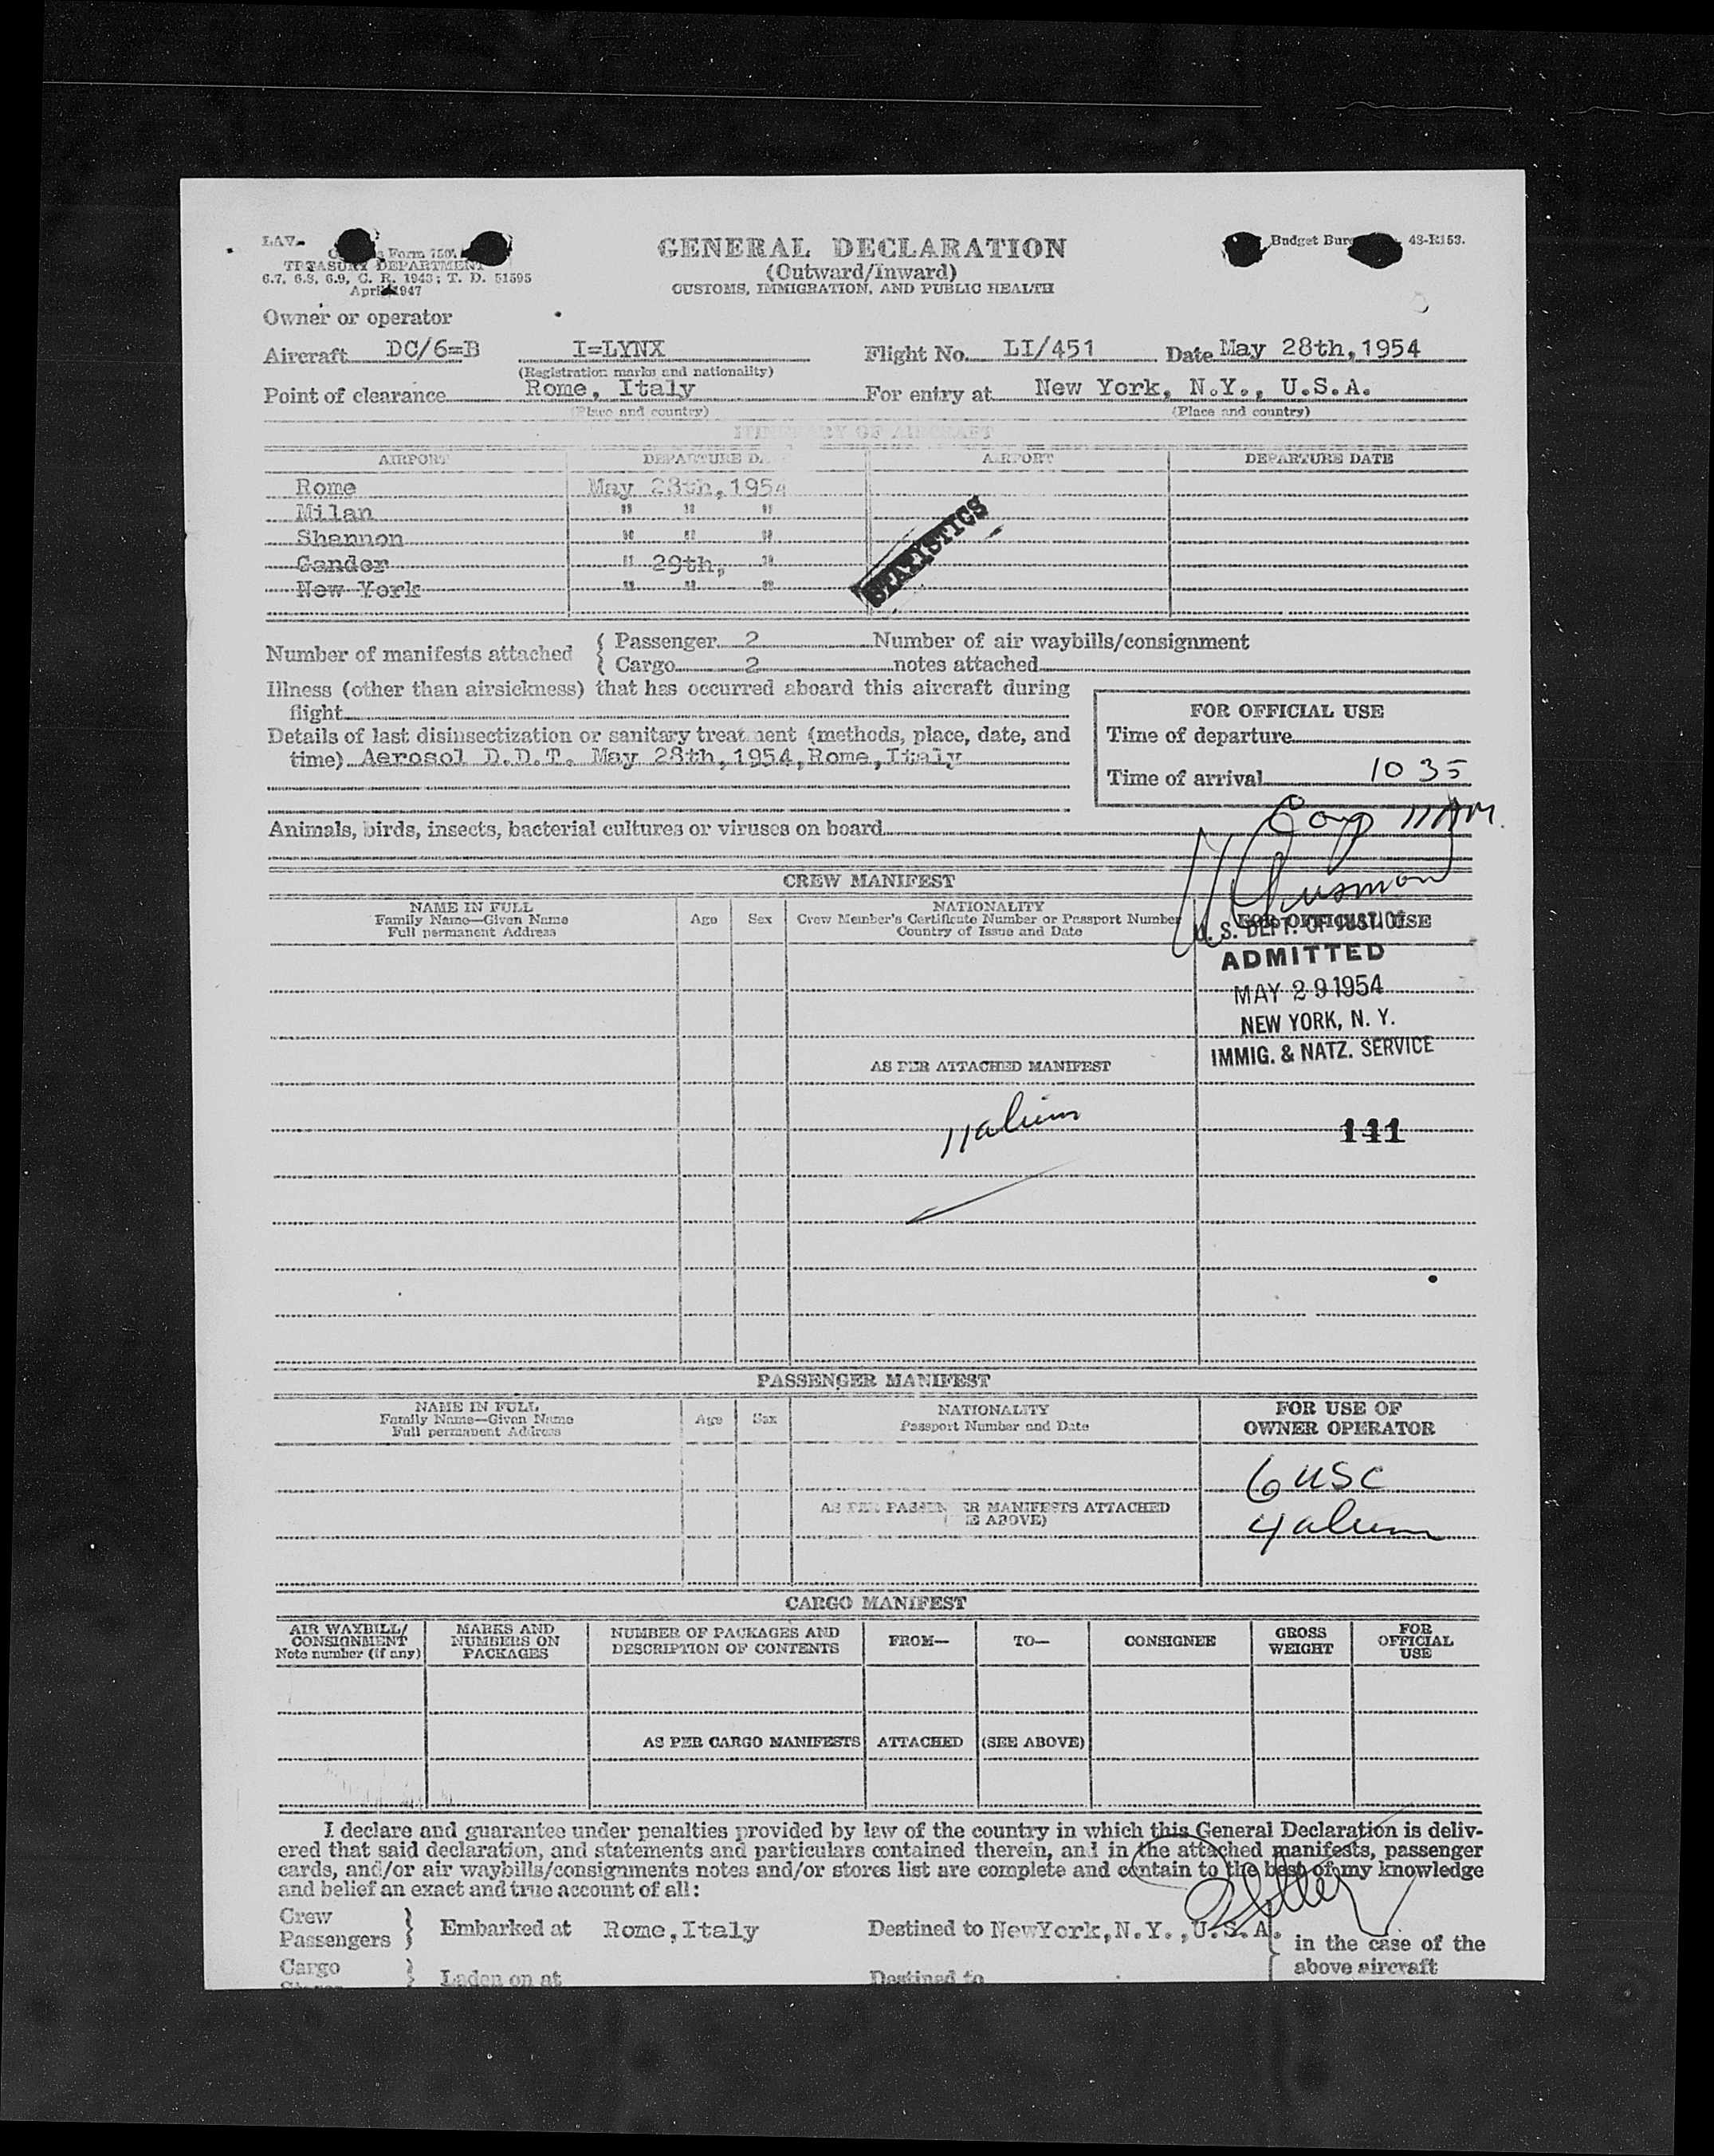 LAV-
Form 7507
TREASURY DEPARTMENT
6.7, 6.8, 6.9, C. R. 1943; T. D. 51595
April 1947
GENERAL DECLARATION
(Outward/Inward)
CUSTOMS, IMMIGRATION, AND PUBLIC HEALTH
Budget Bureau 43-R153.
Owner or operator
Aircraft DC/6=B I=LYNX Flight No. LI/451 Date May 28th,1954
(Registration marks and nationality)
Point of clearance Rome, Italy For entry at New York, N.Y., U.S.A.
(Place and country) (Place and country)
ITINERARY OF AIRCRAFT
AIRPORT DEPARTURE DATE AIRPORT DEPARTURE DATE
Rome May 28th,1954
Milan " " "
Shannon " " "
Gander " 29th, "
New York " " "
STATISTICS
Number of manifests attached { Passenger 2 Number of air waybills/consignment
{ Cargo 2 notes attached
Illness (other than airsickness) that has occurred aboard this aircraft during
flight
Details of last disinsectization or sanitary treatment (methods, place, date, and
time) Aerosol D.D.T. May 28th,1954,Rome,Italy
FOR OFFICIAL USE
Time of departure
Time of arrival 10 35
11 AM.
Animals, birds, insects, bacterial cultures or viruses on board
CREW MANIFEST
NAME IN FULL
Family Name—Given Name
Full permanent Address
Age Sex
NATIONALITY
Crew Member's Certificate Number or Passport Number
Country of Issue and Date
FOR OFFICIAL USE
U. S. DEPT. OF JUSTICE
ADMITTED
MAY 29 1954
NEW YORK, N. Y.
IMMIG. & NATZ. SERVICE
AS PER ATTACHED MANIFEST
11 alien
141
PASSENGER MANIFEST
NAME IN FULL
Family Name—Given Name
Full permanent Address
Age Sex
NATIONALITY
Passport Number and Date
FOR USE OF
OWNER OPERATOR
6 USC
AS PER PASSENGER MANIFESTS ATTACHED
(SEE ABOVE)
4 alien
CARGO MANIFEST
AIR WAYBILL/
CONSIGNMENT
Note number (if any)
MARKS AND
NUMBERS ON
PACKAGES
NUMBER OF PACKAGES AND
DESCRIPTION OF CONTENTS
FROM—
TO—
CONSIGNEE
GROSS
WEIGHT
FOR
OFFICIAL
USE
AS PER CARGO MANIFESTS ATTACHED (SEE ABOVE)
I declare and guarantee under penalties provided by law of the country in which this General Declaration is deliv-
ered that said declaration, and statements and particulars contained therein, and in the attached manifests, passenger
cards, and/or air waybills/consignments notes and/or stores list are complete and contain to the best of my knowledge
and belief an exact and true account of all:
Crew
Passengers } Embarked at Rome,Italy Destined to NewYork,N.Y.,U.S.A.
in the case of the
above aircraft
Cargo
Stores } Laden on at Destined to